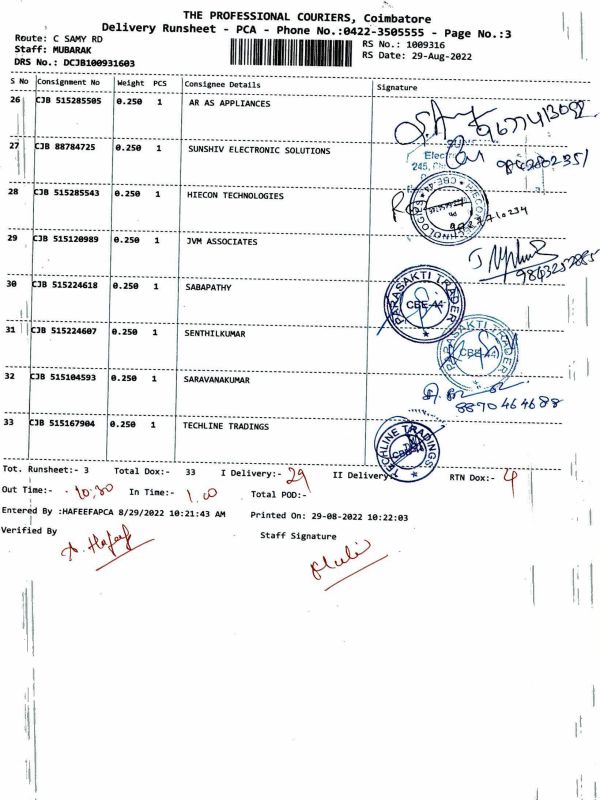 THE PROFESSIONAL COURIERS, Coimbatore
Delivery Runsheet - PCA - Phone No.:0422-3505555 - Page No.:3
Route: C SAMY RD
RS No.: 1009316
Staff: MUBARAK
RS Date: 29-Aug-2022
DRS No.: DCJB100931603
S No Consignment No Weight PCS Consignee Details Signature
26 CJB 515285505 0.250 1 AR AS APPLIANCES
27 CJB 88784725 0.250 1 SUNSHIV ELECTRONIC SOLUTIONS
28 CJB 515285543 0.250 1 HIECON TECHNOLOGIES
29 CJB 515120989 0.250 1 JVM ASSOCIATES
30 CJB 515224618 0.250 1 SABAPATHY
PARASAKTI TRADER
CBE-44
31 CJB 515224607 0.250 1 SENTHILKUMAR
PARASAKTI TRADER
CBE-44
32 CJB 515104593 0.250 1 SARAVANAKUMAR
8870464688
33 CJB 515167904 0.250 1 TECHLINE TRADINGS
TECHLINE TRADINGS
Tot. Runsheet:- 3 Total Dox:- 33 I Delivery:- 29 II Delivery RTN Dox:- 4
Out Time:- 10.30 In Time:- 1.00 Total POD:-
Entered By :HAFEEFAPCA 8/29/2022 10:21:43 AM Printed On: 29-08-2022 10:22:03
Verified By Staff Signature
A. Hafeef